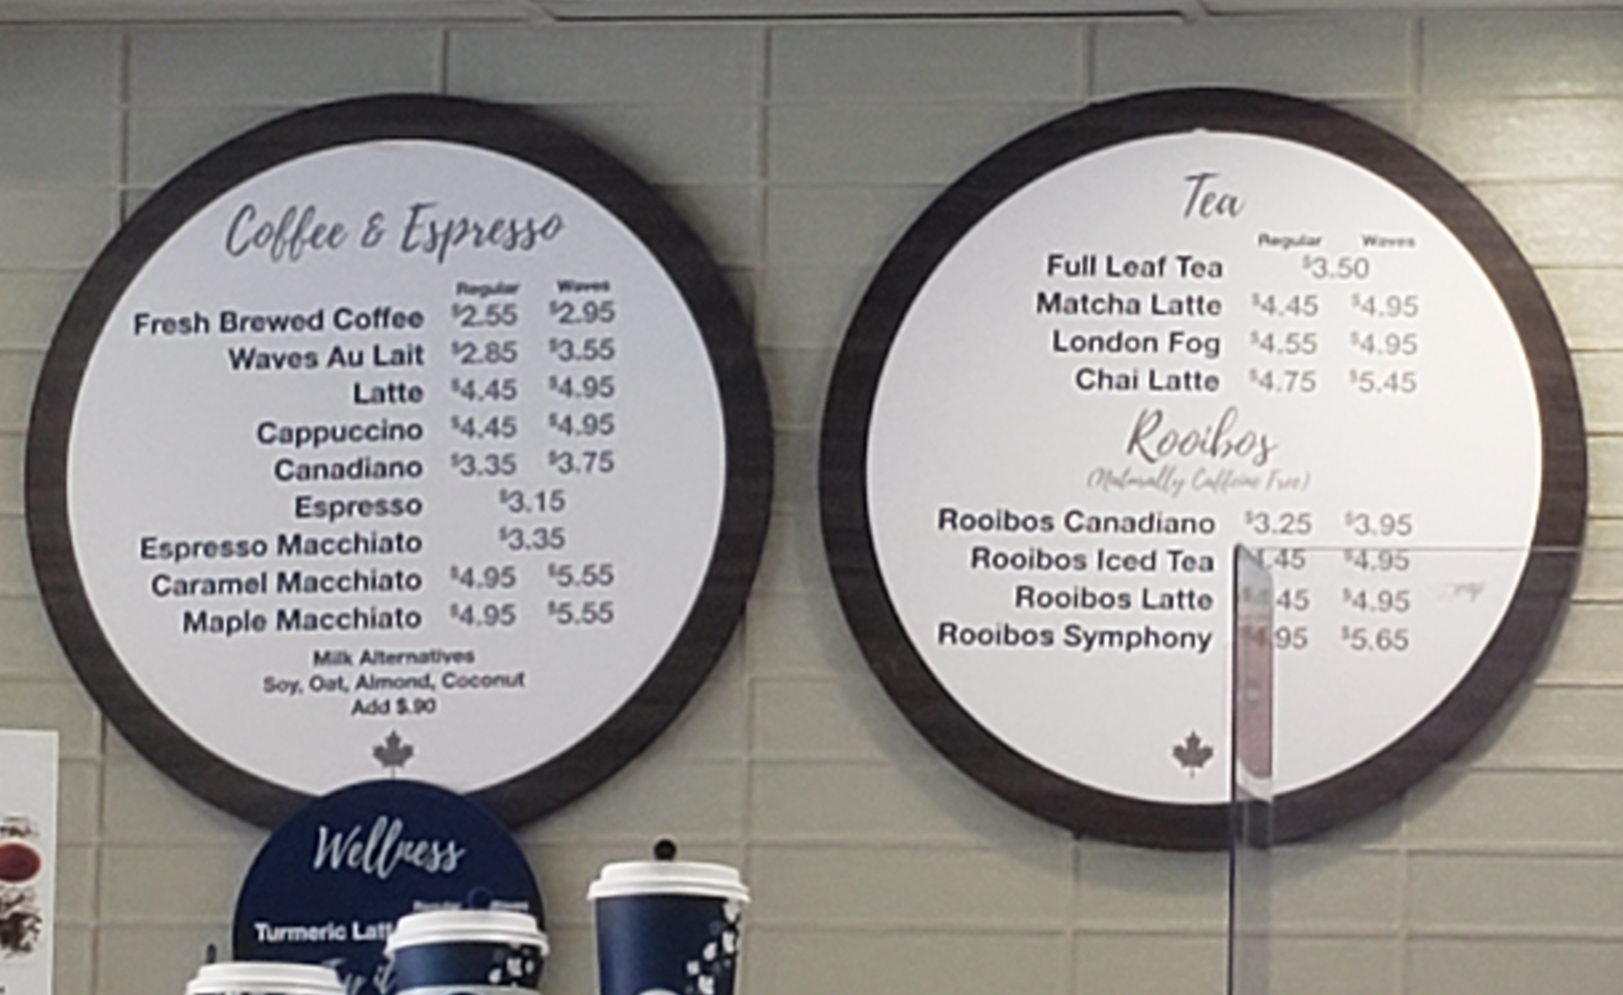 Coffee & Espresso
Regular Waves
Fresh Brewed Coffee $2.55 $2.95
Waves Au Lait $2.85 $3.55
Latte $4.45 $4.95
Cappuccino $4.45 $4.95
Canadiano $3.35 $3.75
Espresso $3.15
Espresso Macchiato $3.35
Caramel Macchiato $4.95 $5.55
Maple Macchiato $4.95 $5.55
Milk Alternatives
Soy, Oat, Almond, Coconut
Add $.90
Wellness
Regular Waves
Turmeric Latt
Tea
Regular Waves
Full Leaf Tea $3.50
Matcha Latte $4.45 $4.95
London Fog $4.55 $4.95
Chai Latte $4.75 $5.45
Rooibos
(Naturally Caffeine Free)
Rooibos Canadiano $3.25 $3.95
Rooibos Iced Tea 4.45 $4.95
Rooibos Latte 45 $4.95
Rooibos Symphony $4.95 $5.65